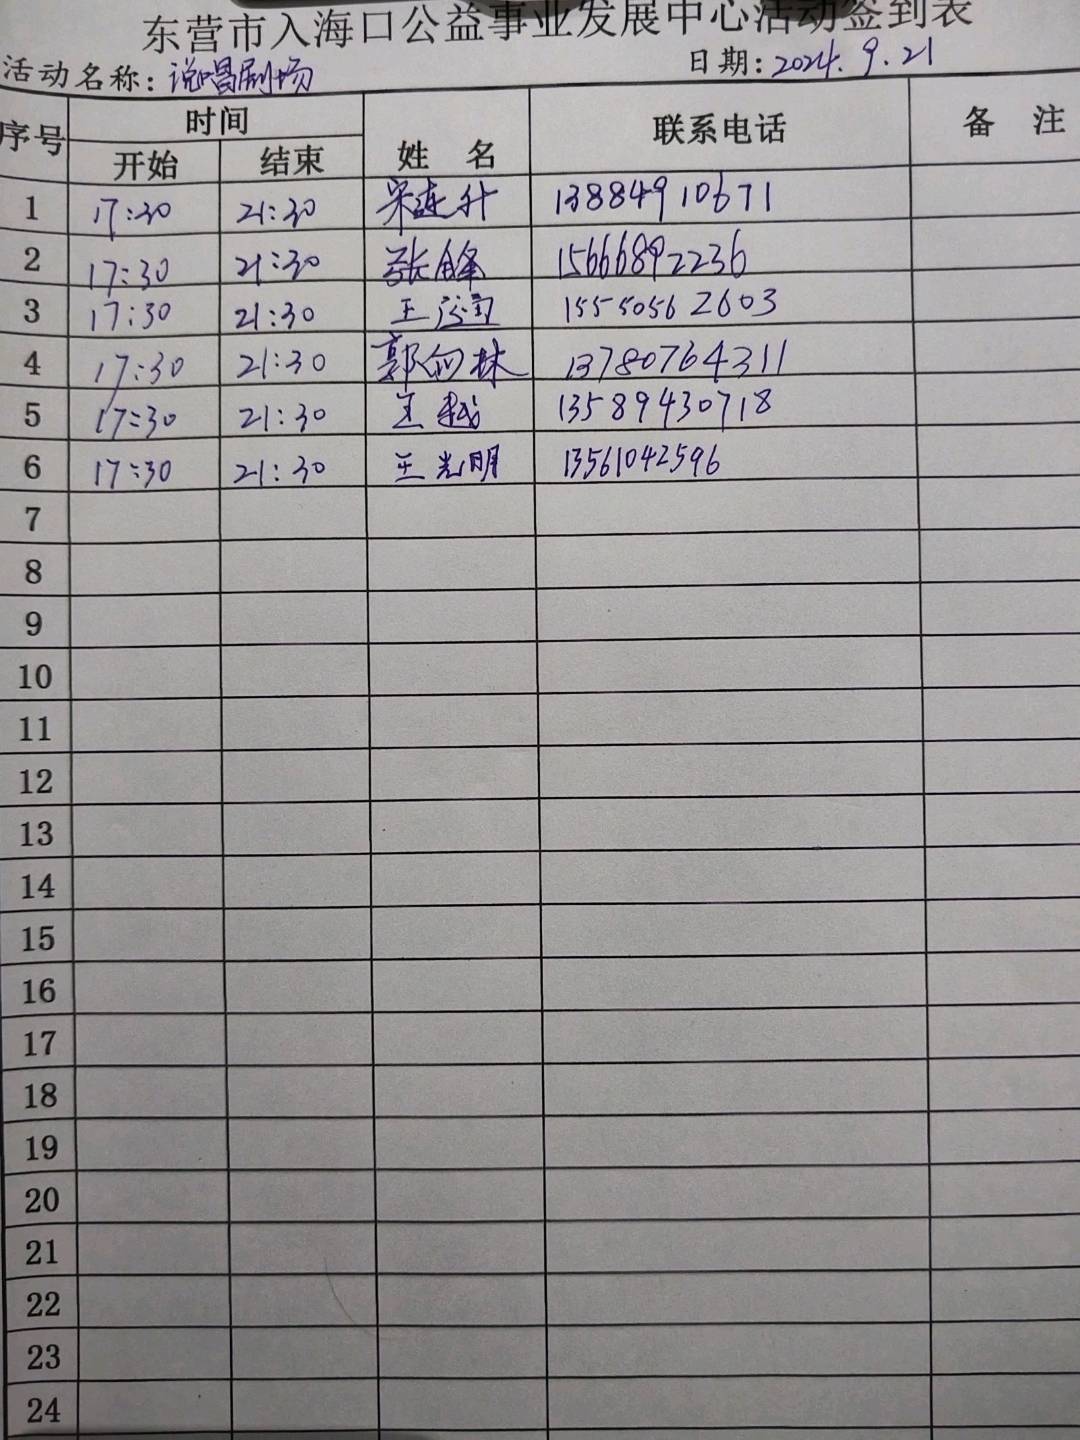 东营市入海口公益事业发展中心活动签到表
活动名称:说唱剧场 日期:2024.9.21
序号 时间 姓 名 联系电话 备 注
开始 结束
1 17:30 21:30 宋连升 13884910671
2 17:30 21:30 张峰 15666892236
3 17:30 21:30 王 15550562603
4 17:30 21:30 郭向林 13780764311
5 17:30 21:30 王越 13589430718
6 17:30 21:30 王光明 13561042596
7
8
9
10
11
12
13
14
15
16
17
18
19
20
21
22
23
24